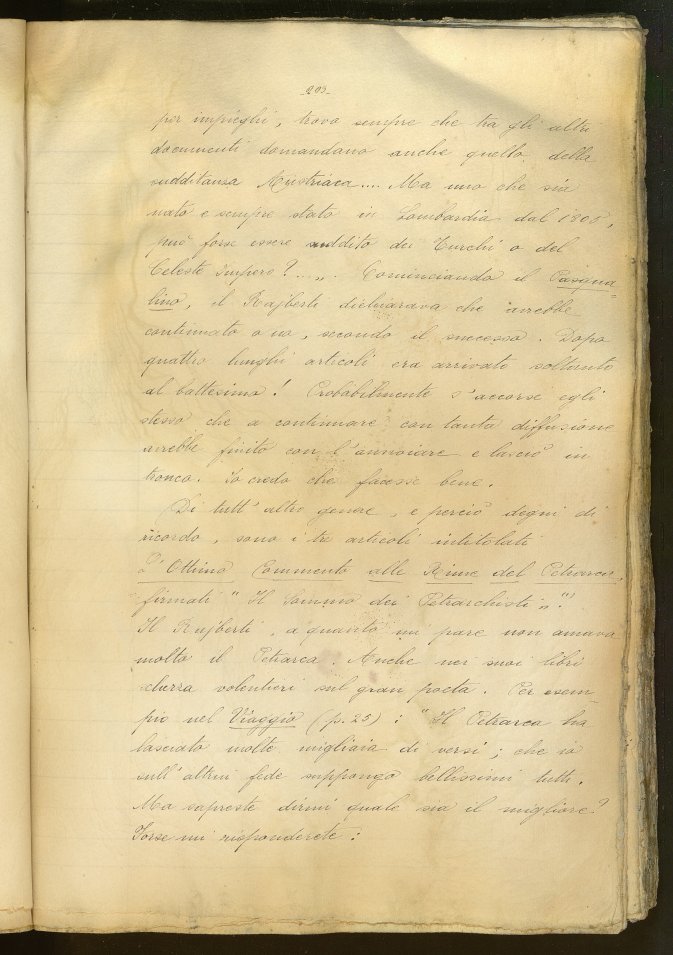 203
per impieghi, trovo sempre che tra gli altri
documenti domandano anche quello della
sudditanza Austriaca.... Ma uno che sia
nato e sempre stato in Lombardia dal 1805,
può forse essere suddito dei Turchi o del
Celeste Impero?.... Cominciando il Pasqua-
lino, il Rajberti dichiarava che avrebbe
continuato o no, secondo il successo. Dopo
quattro lunghi articoli era arrivato soltanto
al battesimo! Probabilmente s'accorse egli
stesso che a continuare con tanta diffusione
avrebbe finito con l'annoiare e lasciò in
tronco. Io credo che facesse bene.
Di tutt'altro genere, e perciò degni di
ricordo, sono i tre articoli intitolati
L'Ottimo Commento alle Rime del Petrarca,
firmati "Il Sommo dei Petrarchisti".
Il Rajberti, a quanto mi pare non amava
molto il Petrarca. Anche nei suoi libri
scherza volentieri sul gran poeta. Per esem-
pio nel Viaggio (p. 25): "Il Petrarca ha
lasciato molte migliaia di versi; che io
sull'altrui fede suppongo bellissimi tutti.
Ma sapreste dirmi quale sia il migliore?
Forse mi risponderete: